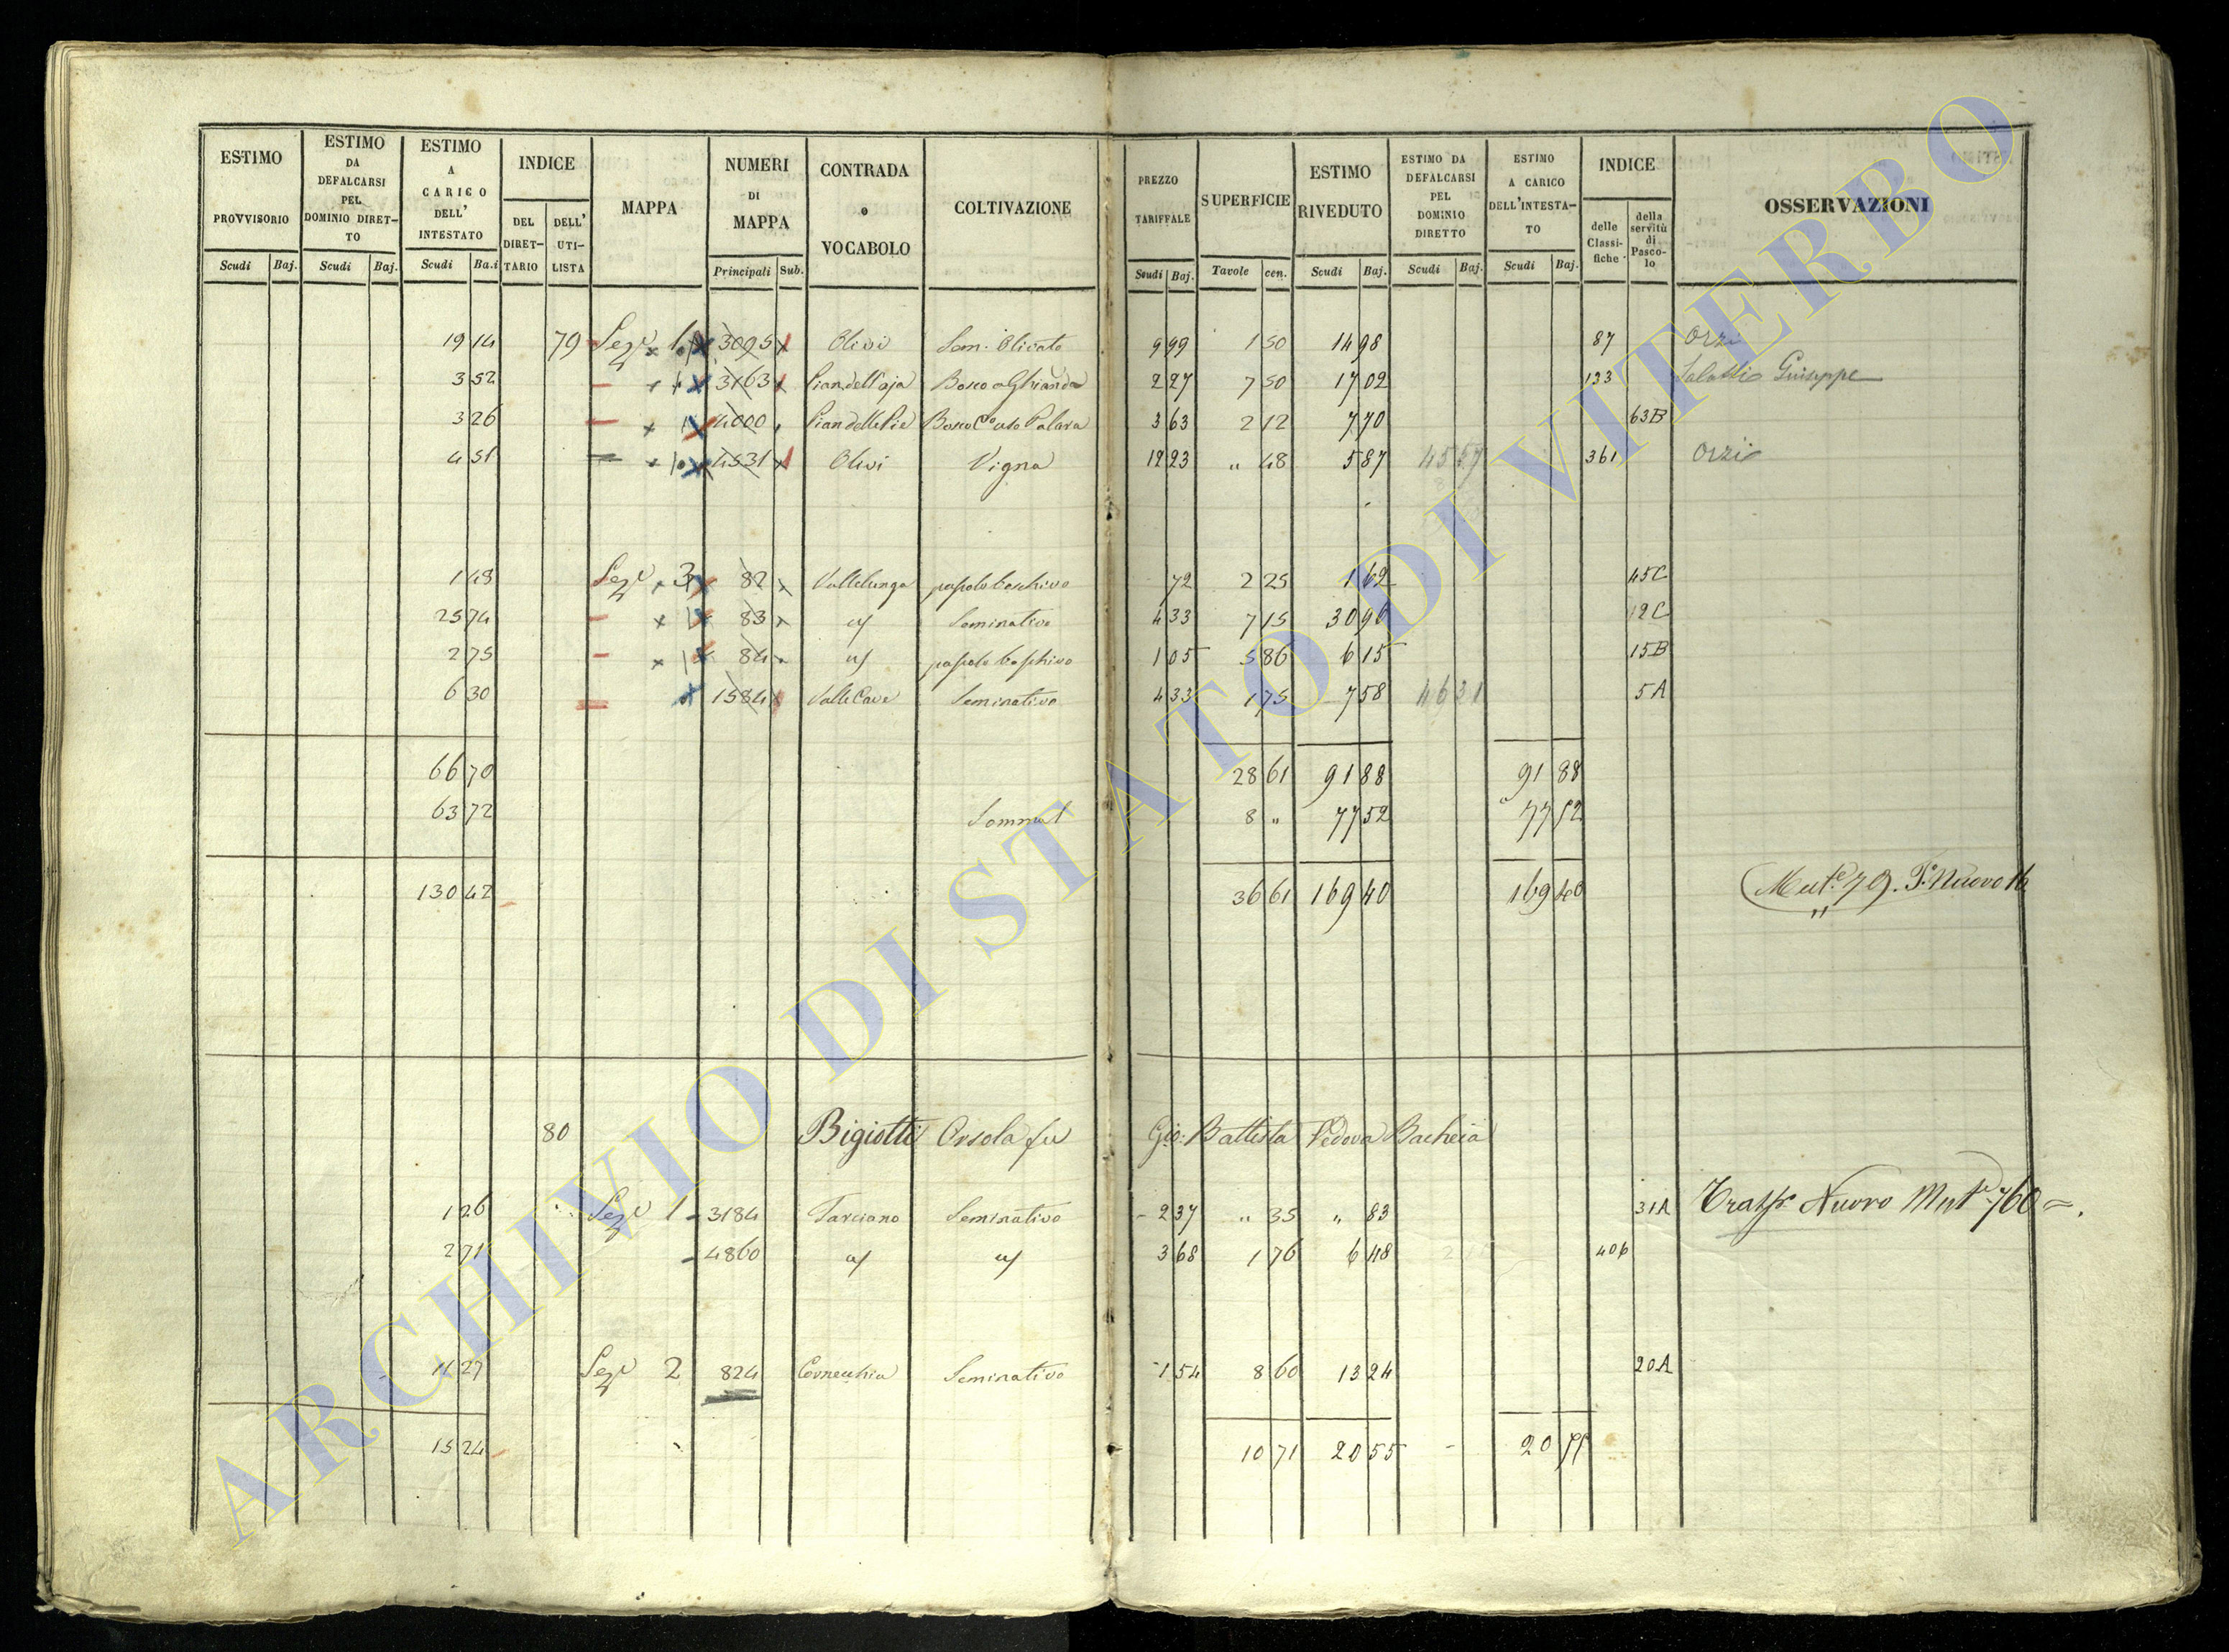 ESTIMO PROVVISORIO
Scudi Baj.
ESTIMO DA DEFALCARSI PEL DOMINIO DIRET-TO
Scudi Baj.
ESTIMO A CARICO DELL' INTESTATO
Scudi Ba.i
INDICE
DEL DIRET-TARIO
DELL' UTI-LISTA
MAPPA
NUMERI DI MAPPA
Principali Sub.
CONTRADA o VOCABOLO
COLTIVAZIONE
PREZZO TARIFFALE
Scudi Baj.
SUPERFICIE
Tavole cen.
ESTIMO RIVEDUTO
Scudi Baj.
ESTIMO DA DEFALCARSI PEL DOMINIO DIRETTO
Scudi Baj.
ESTIMO A CARICO DELL'INTESTA-TO
Scudi Baj.
INDICE
delle Classi-fiche
della servitù di Pasco-lo
OSSERVAZIONI
19 14 79 Seze 1 3095 Olivi Sem. Olivato 9 99 1 50 14 98 87 Orzi
3 52 3163 Pian dell'aja Bosco a Ghianda 2 27 7 50 17 02 133 Giuseppe
3 26 4000 Pian delle Pie Bosco C. uso Palara 3 63 2 12 7 70 63B
4 51 4531 Olivi Vigna 12 23 " 48 5 87 45 57 361 Orzi
1 48 Seze 3 82 Vallelunga pascolo boschivo 72 2 25 1 62 45C
25 74 83 Seminativo 4 33 7 15 30 96 12C
2 75 84 pascolo boschivo 1 05 5 86 6 15 15B
6 30 1584 Valle Cave Seminativo 4 33 1 75 7 58 46 31 5A
66 70 28 61 91 88 91 88
63 72 8 " 77 52 77 52
130 42 36 61 169 40 169 40 Mute 79. Nuovo 16
80 Bigiotti Orsola fu Gio: Battista Vedova Bacheca
1 26 Seze 1 3184 Tarciano Seminativo 2 37 " 35 " 83 31A Trasp Nuovo Mute 760 =.
2 71 4860 3 68 1 76 6 48 406
11 27 Seze 2 824 Cornecchia Seminativo 1 54 8 60 13 24 20A
15 24 10 71 20 55 20 55
ARCHIVIO DI STATO DI VITERBO